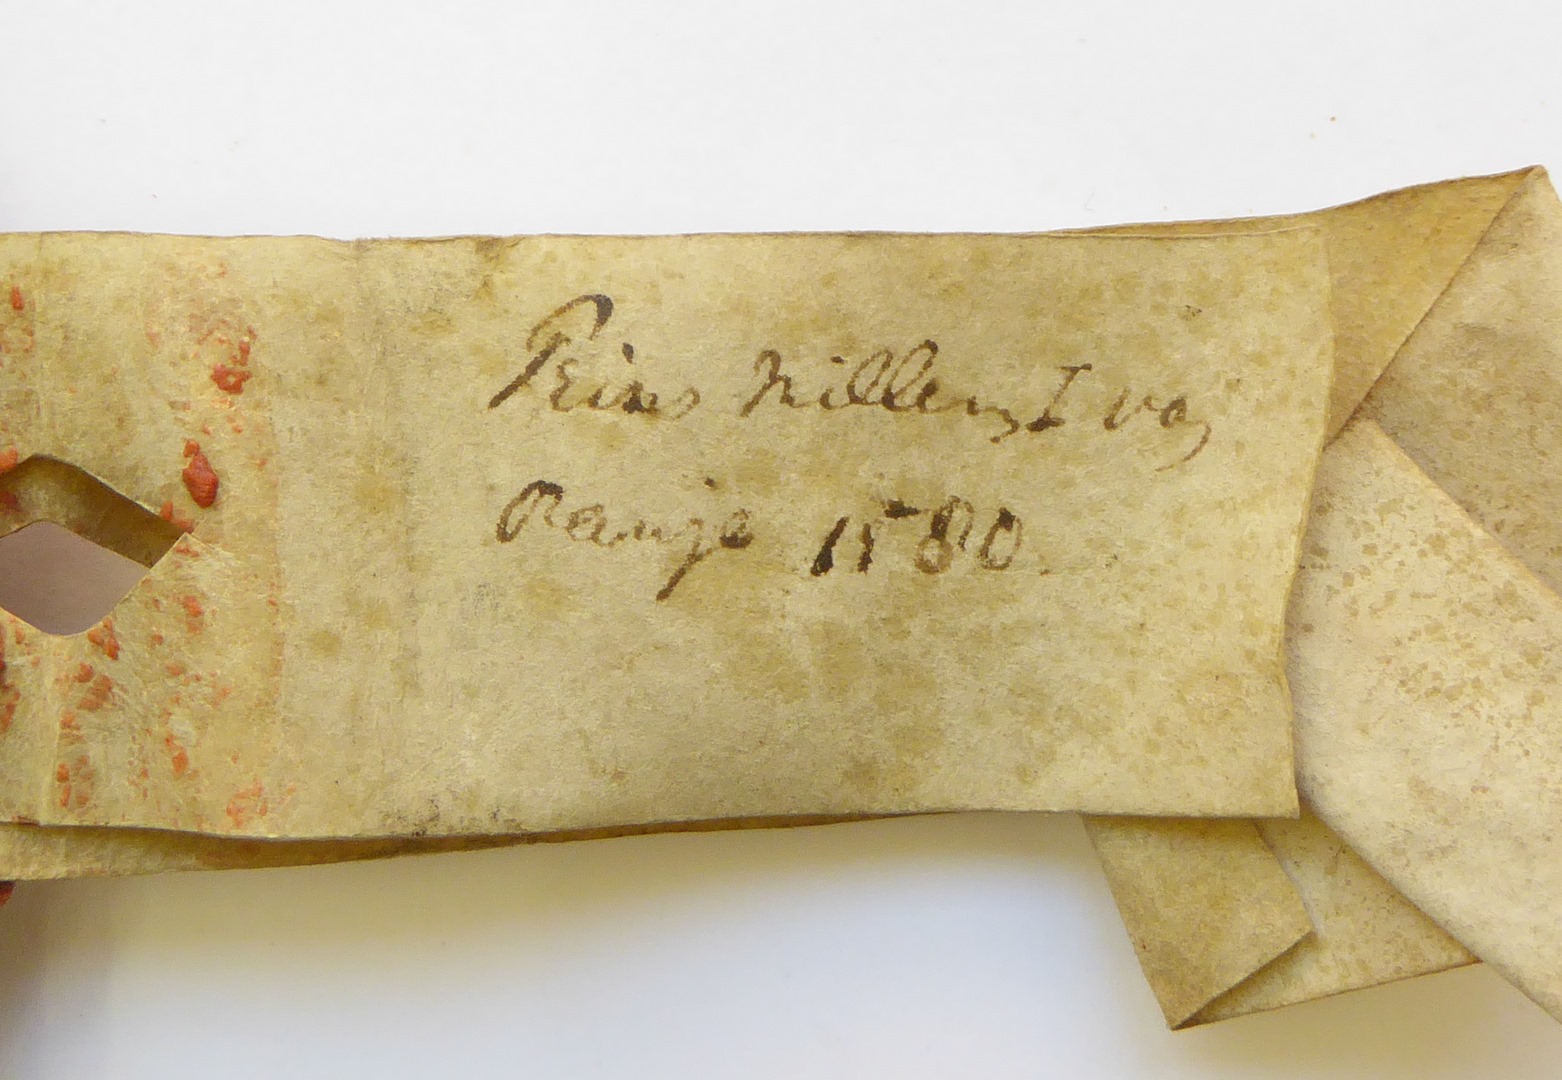 Prins Willem I van
Oranje 1580.